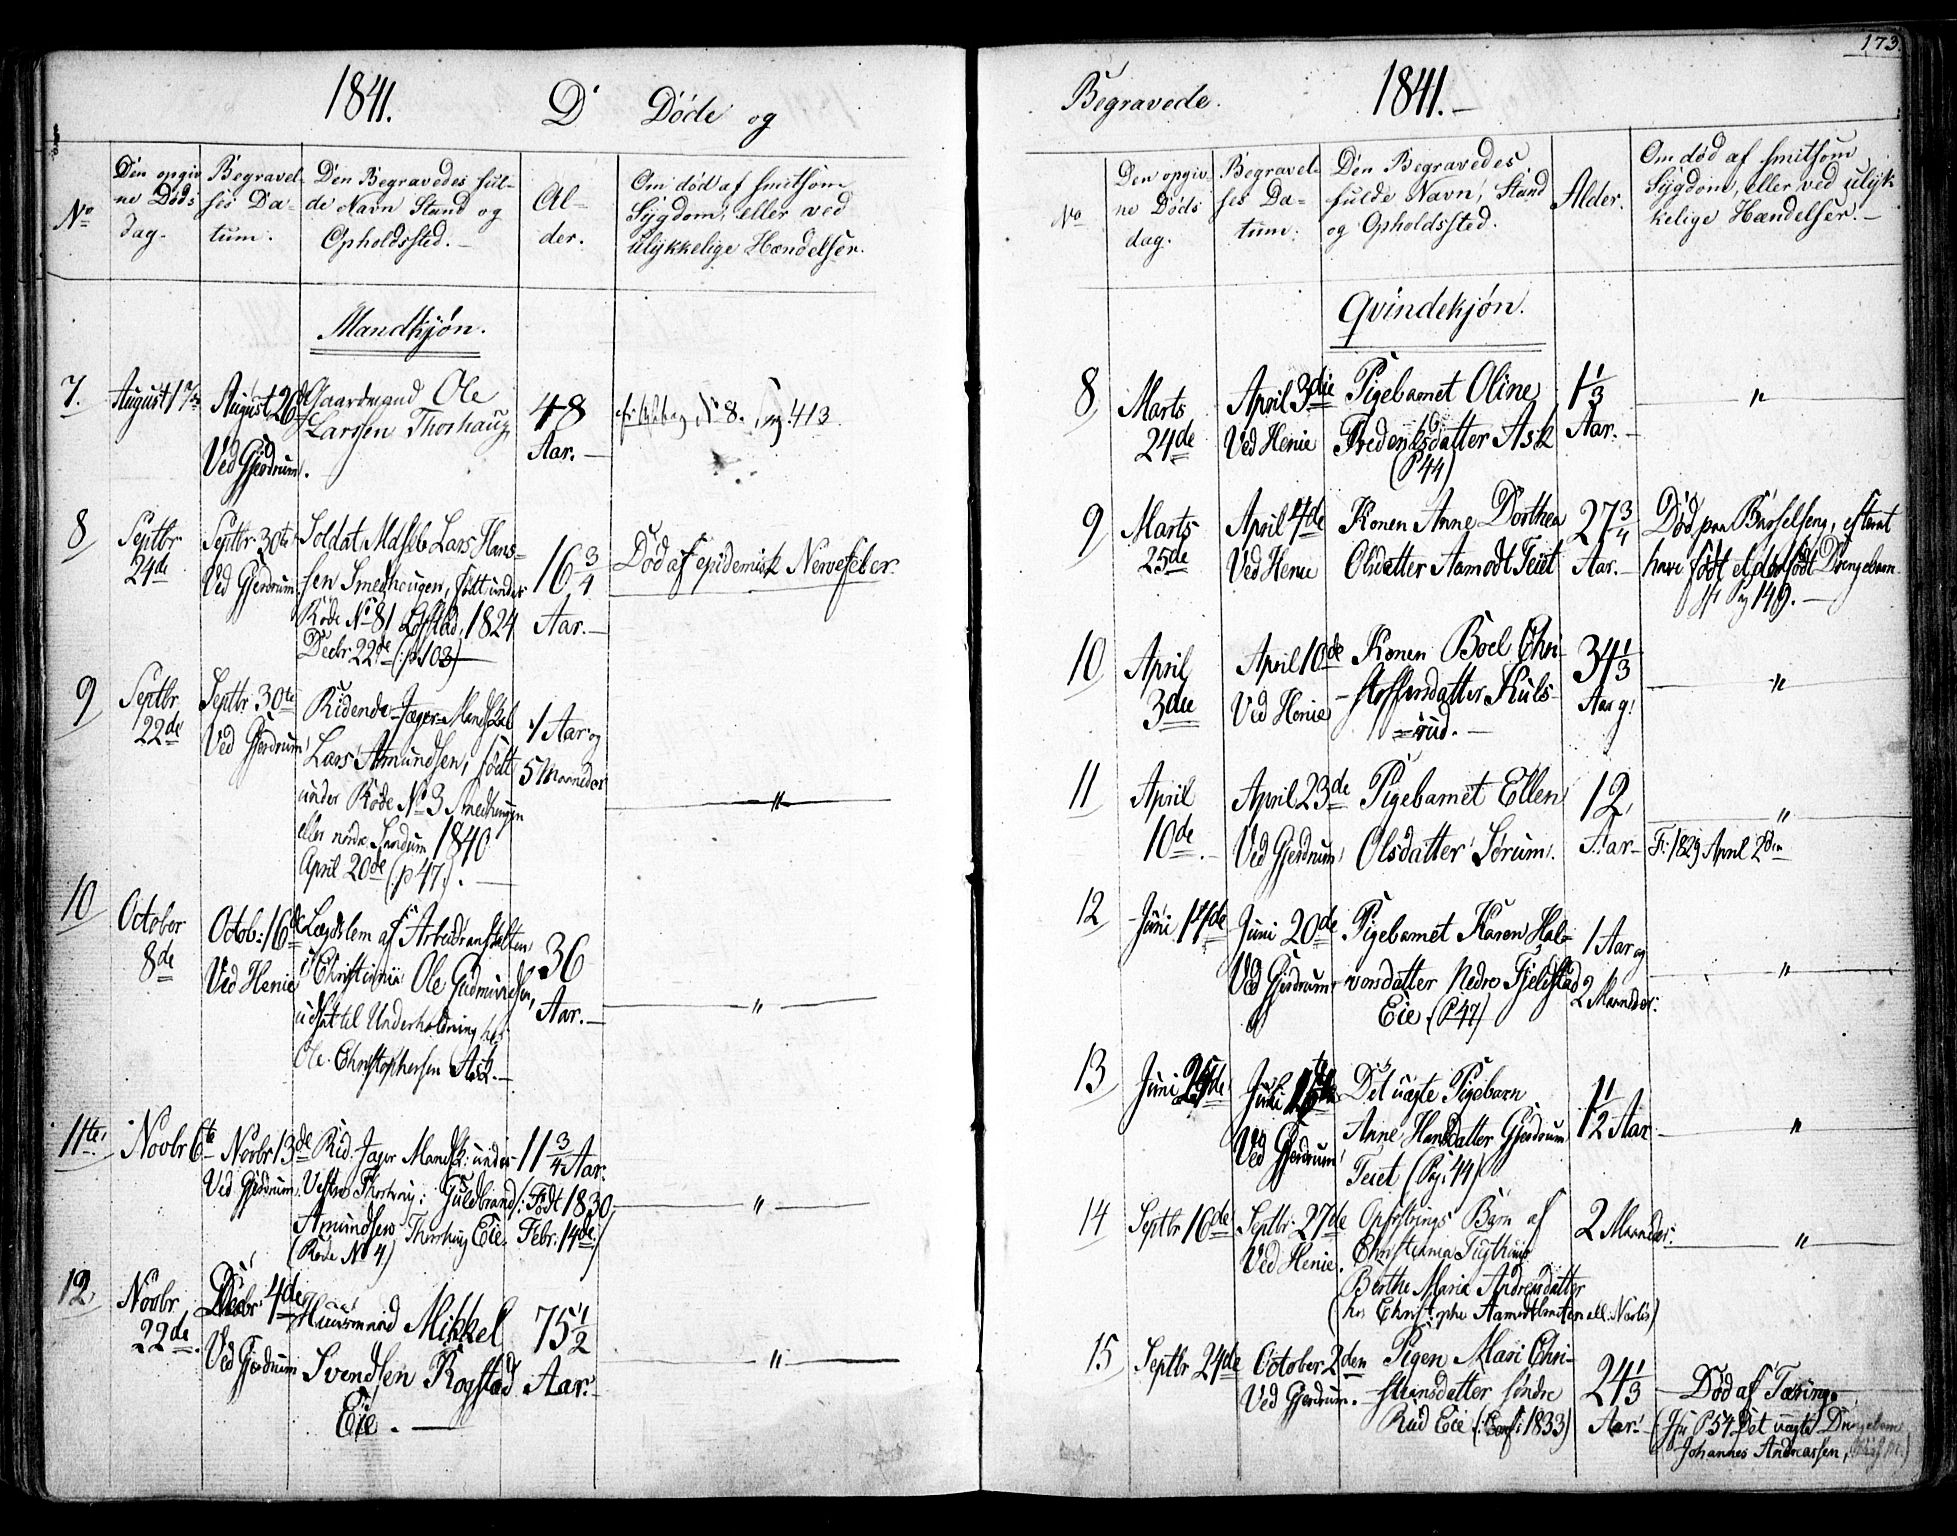 173.
1841. D Döde og
No
Den opgivne Döds dag.
Begravelses Datum.
Den Begravedes fulde Navn Stand og Opholdssted.
Alder.
Om död af smitsom Sygdom, eller ved ulykkelige Hændelser.
Mandkjön.
7. August 17
August 26de
Ved Gjerdrum.
Gaardmand Ole
Larsen Thorhaug
48
Aar.
No 8. 413
8 Septbr
24de
Septbr 30te
Ved Gjerdrum
Soldat Mdsk Lars Hans-
sen Smedhougen, födt under
Rode No 81 Löfstad, 1824
Decbr. 22de (:p 103)
16 3/4
Aar.
Död af epidemisk Nervefeber.
9 Septbr
22de
Septbr. 30te
Ved Gjerdrum
Ridende-Jæger-Mandskab
Lars Amundsen, födt
under Rode No 3 Smedhougen
eller nordre 1840
April 20de (p 47).
1 Aar og
5 Maaneder
"
10 October
8de
Octob: 16de
Ved Henie
Lægdslem af Arbeidsanstalten
i Christiania Ole Gudmundsen,
udsat til Underholdning hos
Ole Christophersen Ask.
36
Aar.
"
11te Novbr 6te
Novbr 13de
Ved Gjerdrum.
Rid. Jager Mandsk: under
Vestre Thorhaug: Guldbrand
Amundsen Thorhaug Eie.
(Rode No 4)
11 3/4 Aar.
(: Födt 1830
Febr. 14de)
"
12 Novbr
22de
Decbr 4de
Ved Gjerdrum
Huusmand Mikkel
Svendsen Rogstad
Eie.
75 1/2
Aar.
"
Begravede. 1841.
No
Den opgivne Döds dag.
Begravelses Datum.
Den Begravedes fulde Navn, Stand og Opholdssted.
Alder.
Om död af smitsom Sygdom, eller ved ulykkelige Hændelser.
Qvindekjön.
8 Marts
24de
April 3die
Ved Henie
Pigebarnet Oline
Frederiksdatter Ask
(P 44)
1 1/3
Aar.
"
9 Marts
25de
April 4de
Ved Henie
Konen Anne Dorthea
Olsdatter Aamodt Teiet
27 3/4
Aar.
Död paa Barselseng, efterat
have födt et dödfödt Drengebarn
jfr Pag 149.
10 April
3die
April 10de
Ved Henie
Konen Boel Chri-
stoffersdatter Kuls-
rud.
34 1/3
Aar g:
"
11 April
10de
April 23de
Ved Gjerdrum
Pigebarnet Ellen
Olsdatter Sörum.
12
Aar
"
F: 1829 April 28de
12 Juni 14de
Juni 20de
Ved Gjerdrum
Pigebarnet Karen Hal-
vorsdatter Nedre Fjeldstad
Eie. (P 47)
1 Aar og
2 Maaneder.
"
13 Juni 25de
Ved Gjerdrum
Det uægte Pigebarn
Anne Hansdatter Gjerdrum
Teiet (Pag. 44)
1 1/2 Aar
"
14 Septbr 16de
Septbr. 27de
Ved Henie.
Opfostrings Barn af
Christiania Tugthuus
Berthe Maria Andreasdatter
2 Maaneder.
"
15 Septbr 24de
October 2den
Ved Gjerdrum.
Pigen Mari Chri-
stiansdatter söndre
Rud Eie (: Conf: 1833)
24 1/3
Aar.
Död af Tæring.
(Jfr P 54 Det uægte Drengebarn
Johannes Andreassen,